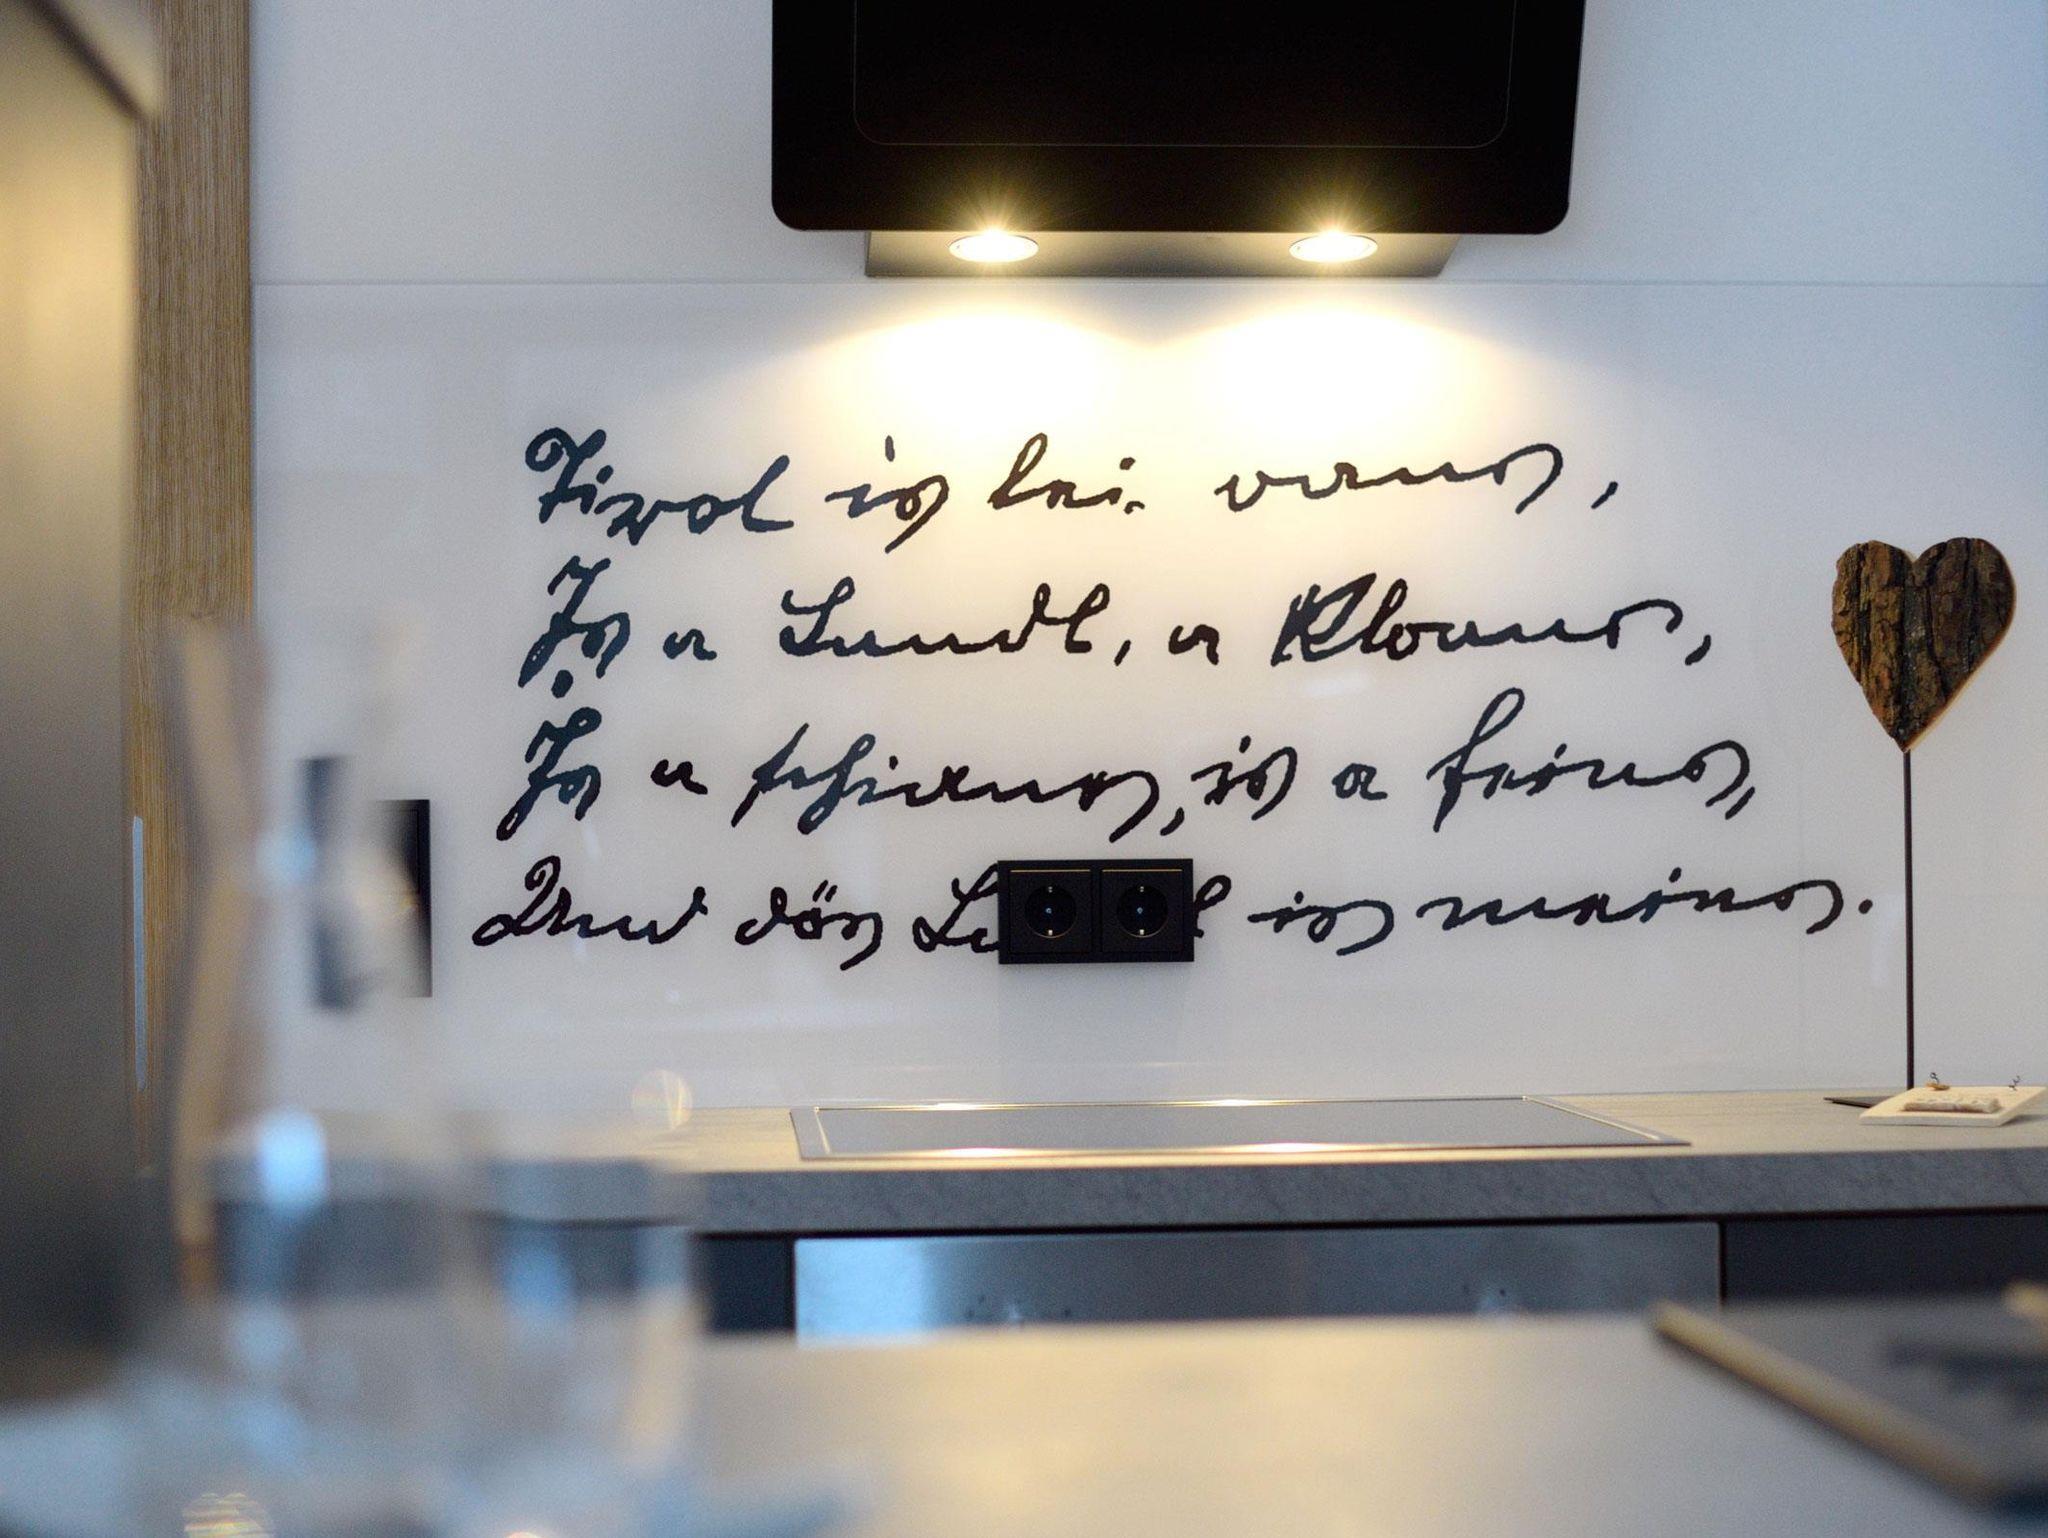 Tirol is lei oans,
Is a Landl, a Kloans,
Is a schians, is a feins,
Und dös Landl is meins.